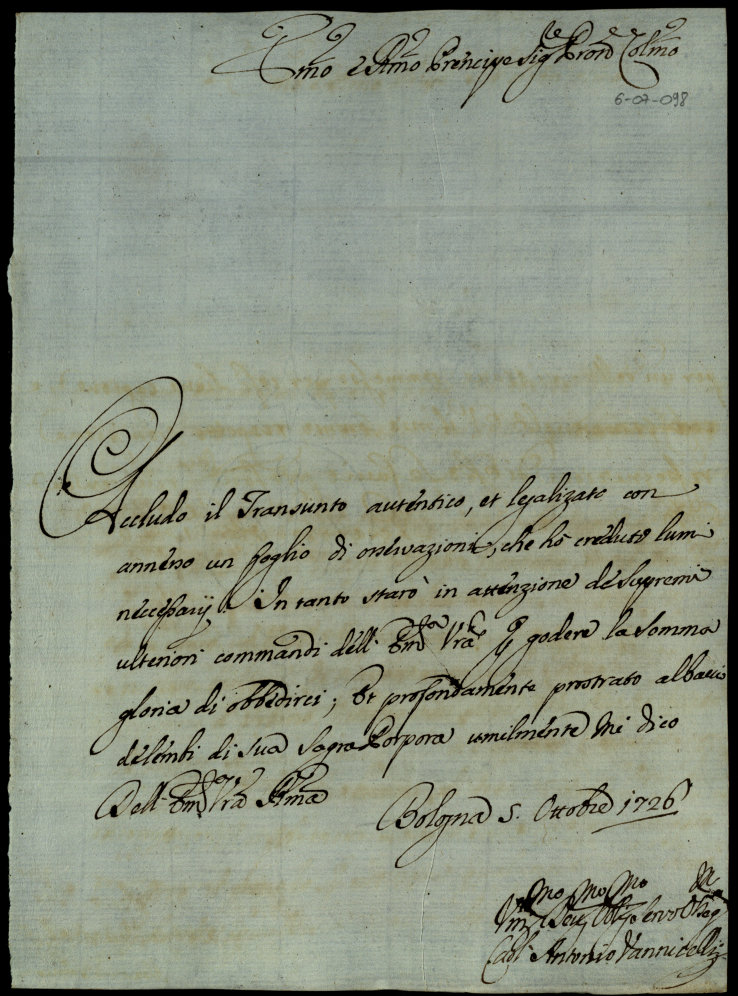 Emo e Rmo Prencipe Sigre Prone Colmo
6-07-098
Accludo il Transunto autentico, et legalizato con
annesso un foglio di osservazioni, che hò creduto lumi
necessarij. In tanto starò in attenzione de Supremi
ulteriori commandi dell' Emza Vra per godere la somma
gloria di obbedirci; Et profondamente prostrato al bacio
de lembi di sua Sagra Porpora umilmente mi dico
Dell' Emza Vra Rma
Bologna 5. Ottobre 1726
Antonio Vannicelli